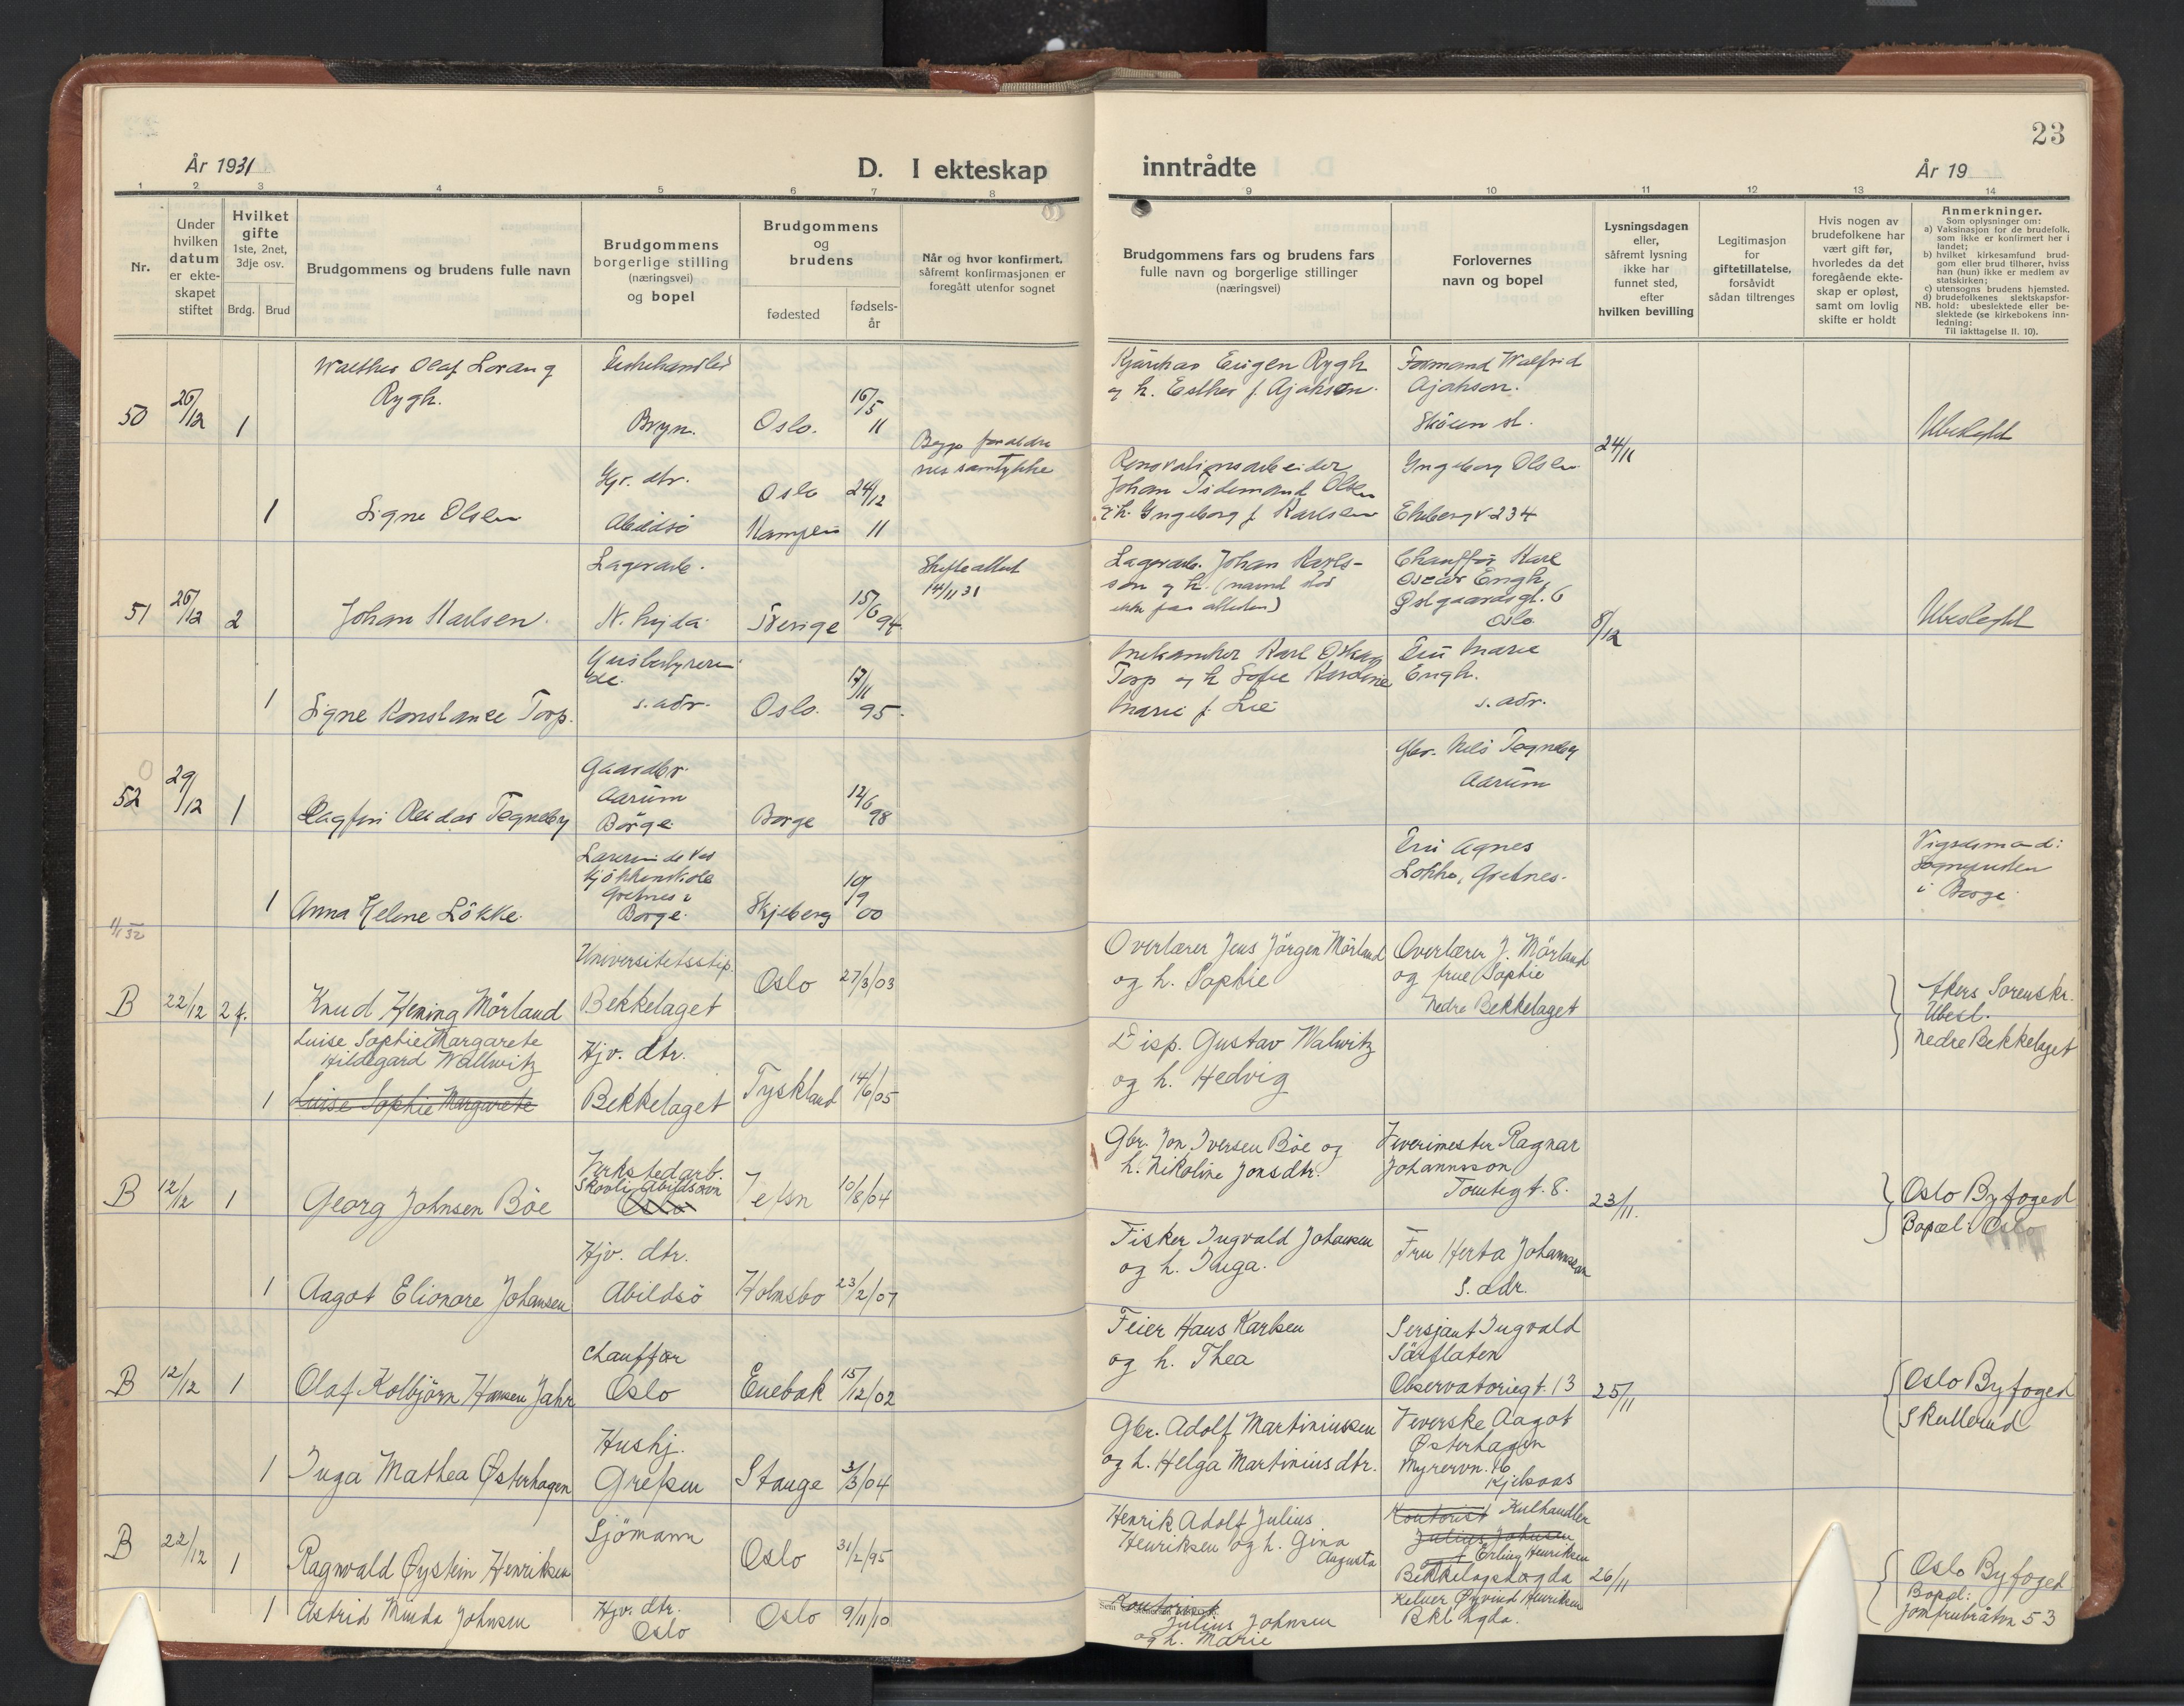 23
År 1931
D. I ekteskap
inntrådte
År 19
1 2 3 4 5 6 7 8 9 10 11 12 13 14
Nr.
Under
hvilken
datum
er ekte-
skapet
stiftet
Hvilket
gifte
1ste, 2net,
3dje osv.
Brdg.
Brud
Brudgommens og brudens fulle navn
Brudgommens
borgerlige stilling
(næringsvei)
og bopel
Brudgommens
og
brudens
fødested
fødsels-
år
Når og hvor konfirmert,
såfremt konfirmasjonen er
foregått utenfor sognet
Brudgommens fars og brudens fars
fulle navn og borgerlige stillinger
(næringsvei)
Forlovernes
navn og bopel
Lysningsdagen
eller,
såfremt lysning
ikke har
funnet sted,
efter
hvilken bevilling
Legitimasjon
for
giftetillatelse,
forsåvidt
sådan tiltrenges
Hvis nogen av
brudefolkene har
vært gift før,
hvorledes da det
foregående ekte-
skap er opløst,
samt om lovlig
skifte er holdt
Anmerkninger.
Som oplysninger om:
a) Vaksinasjon for de brudefolk,
som ikke er konfirmert her i
landet;
b) hvilket kirkesamfund brud-
gom eller brud tilhører, hviss
han (hun) ikke er medlem av
statskirken;
c) utensogns brudens hjemsted.
d) brudefolkenes slektskapsfor-
NB. hold: ubeslektede eller be-
slektede (se kirkebokens inn-
ledning:
Til iakttagelse II. 10).
50
26/12
1
Walther Olaf Lorang
Rygh.
Bryn.
Oslo.
16/5
11
Kjørekar Eugen Rygh
og h. Esther f. Ajakson.
Formand Walfrid
Ajakson.
Skøien st.
24/11
Ubeslegtet
1
Signe Olsen
Hjv. dtr.
Abildsø
Oslo
Kampen
24/12
11
Begge foreldre
nes samtykke
Renovationsarbeider
Johan Tidemand Olsen
og h. Ingeborg f. Karlsen
Ingeborg Olsen
Ekebergv 234
51
26/12
2
Johan Karlsen.
Lagerarb.
Sverige
15/6 94.
Skifteattest
14/11 31
Lagerarb. Johan Karls-
son og h. (navnet stod
ikke paa attesten)
Chauffør Karl
Oscar Engh,
Østgaardsgt. 6
Oslo
8/12
Ubeslegtet
1
Signe Konstance Torp.
Husbestyrerin
de.
s. adr.
Oslo.
17/11
95.
Mekaniker Karl Oskar
Torp og h Sofie
Marie f. Lie
Fru Marie
Engh.
s. adr.
52
29/12
1
Dagfin Reidar Tegneby
Gaardbr.
Aarum
Borge
Borge
12/6 98
Gbr. Nils Tegneby
Aarum
1
Anna Helene Løkke.
Lærerinde ved
kjøkkenskole
Grefnes i
Borge.
Skjeberg
10/9
00
Fru Agnes
Løkke, Grefnes.
Vigselsmand:
Sognepresten
i Borge.
1/1 32
B
22/12
2 f.
Knud Hening Mørland
Universitetsstip.
Bekkelaget
Oslo
27/3/03
Overlærer Jens Jörgen Mörland
og h. Sophie
Overlærer J. Mörland
og frue Sophie
Nedre Bekkelaget
Akers Sorenskr.
Ubesl.
Nedre Bekkelaget
1
Luise Sophie Margarete
Hildegard Wallwitz
Luise Sophie Margarete
Hjv. dtr.
Bekkelaget
Tyskland
14/6/05
Disp. Gustav Walwitz
og h. Hedvig
B
12/12
1
Georg Johnsen Böe
Verkstedarb.
Skovli Abildsøvn
Oslo
Vefsn
10/8/04
Gbr. Jon Iversen Böe og
h. Nikoline Jonsdtr.
Vevermester Ragnar
Johannsson
Tomtegt. 8.
23/11.
Oslo Byfoged
Bopæl: Oslo
1
Aagot Elionore Johansen
Hjv. dtr.
Abildsö
Holmsbo
23/2/07
Fisker Ingvald Johansen
og h. Inga.
Fru Herta Johannsson
S. adr.
B
12/12
1
Olaf Kolbjörn Hansen Jahr
Chauffør
Oslo
Enebak
15/12/02
Feier Hans Karlsen
og h. Thea
Sersjant Ingvald
Sörflaten
Observatoriegt. 13
25/11
Oslo Byfoged
Skullerud
1
Inga Mathea Østerhagen
Hushj.
Grefsen
Stange
3/3/04
Gbr. Adolf Martiniussen
og h. Helga Martinius dtr.
Veverske Aagot
Østerhagen
Myrervn. 16
Kjelsaas
B
22/12
1
Ragnvald Øystein Henriksen
Sjömann
Oslo
31/2/95
Henrik Adolf Julius
Henriksen og h. Gina
Augusta
Kontorist Kulhandler
Julius Johnsen
Erling Henriksen
Bekkelagshøgda
26/11
Oslo Byfoged
Bopæl:
Jomfrubråtvn 53
1
Astrid Minda Johnsen
Hjv. dtr.
Oslo
Oslo
9/11/10
Kontorist
Julius Johnsen
og h. Marie
Kelner Øyvind Henriksen
Bkl hgda.